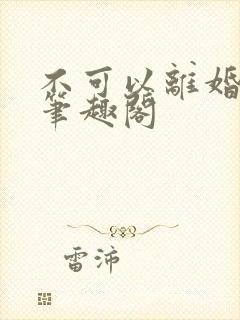 不可以離婚
筆趣閣
雷沛